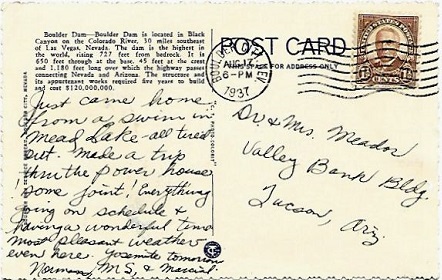 Boulder Dam—Boulder Dam is located in Black
Canyon on the Colorado River, 30 miles southeast
of Las Vegas, Nevada. The dam is the highest in the
world, rising 727 feet from bedrock. It is
650 feet through at the base, 45 feet at the crest
and 1,180 feet long over which the highway passes
connecting Nevada and Arizona. The structure and
its appurtenant works required five years to build
and cost $120,000,000.
POST CARD
SPACE FOR ADDRESS ONLY
BOULDER CITY, NEV.
AUG 17
6-PM
1937
Just came home
from a swim in
Mead Lake - all tired
out. Made a trip
thru the power house
some joint! Everything
going on schedule &
having a wonderful time
most pleasant weather
even here. Yosemite tomorrow
Norman, M.S, &
Dr & Mrs. Meador
Valley Bank Bldg.
Tucson, Ariz.